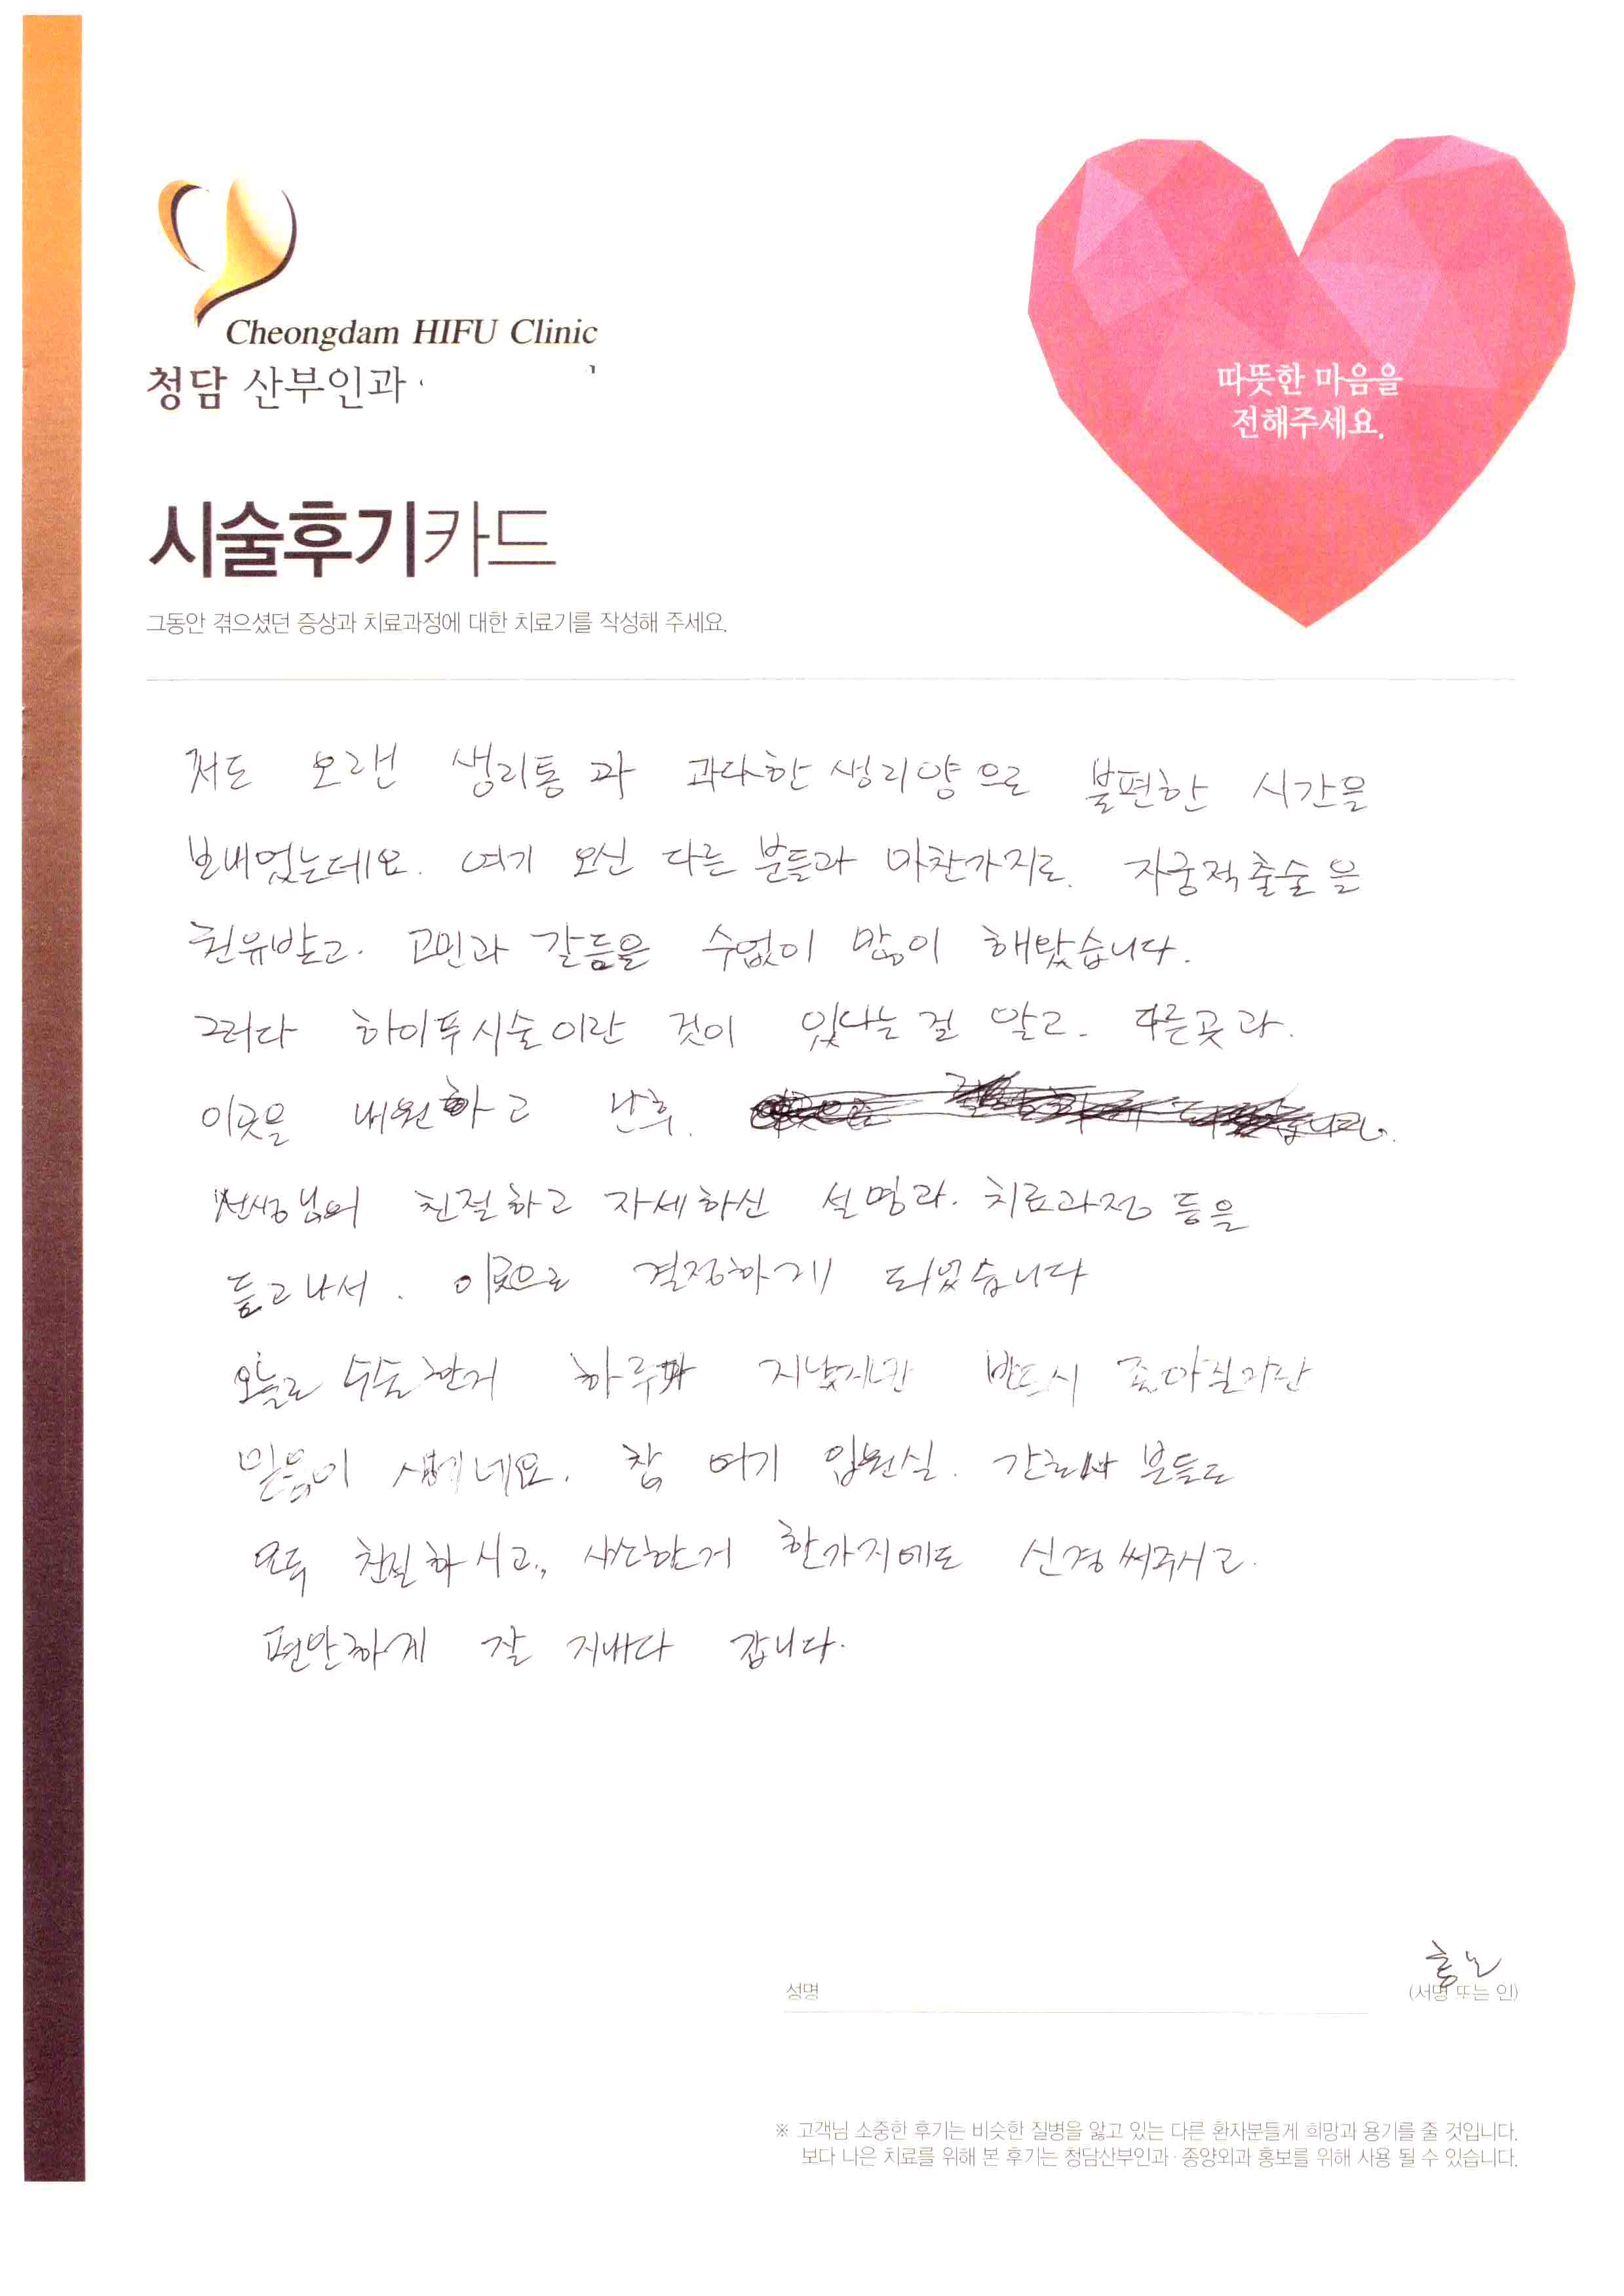 Cheongdam HIFU Clinic
청담 산부인과
따뜻한 마음을
전해주세요.
시술후기카드
그동안 겪으셨던 증상과 치료과정에 대한 치료기를 작성해 주세요.
저도 오랜 생리통과 과다한 생리양으로 불편한 시간을
보내었는데요. 여기 오신 다른 분들과 마찬가지로. 자궁적출술을
권유받고. 고민과 갈등을 수없이 많이 해봤습니다.
그러다 하이푸시술이란 것이 있다는 걸 알고. 다른곳과.
이곳을 내원하고 난후.
선생님의 친절하고 자세하신 설명과. 치료과정 등을
듣고나서. 이곳으로 결정하게 되었습니다
오늘로 수술한거 하루 지났지만 반드시 좋아질거란
믿음이 생기네요. 참 여기 입원실. 간호사 분들도
모두 친절하시고, 사소한거 한가지에도 신경써주시고.
편안하게 잘 지내다 갑니다.
성명
(서명 또는 인)
※ 고객님 소중한 후기는 비슷한 질병을 앓고 있는 다른 환자분들게 희망과 용기를 줄 것입니다.
보다 나은 치료를 위해 본 후기는 청담산부인과·종양외과 홍보를 위해 사용 될 수 있습니다.